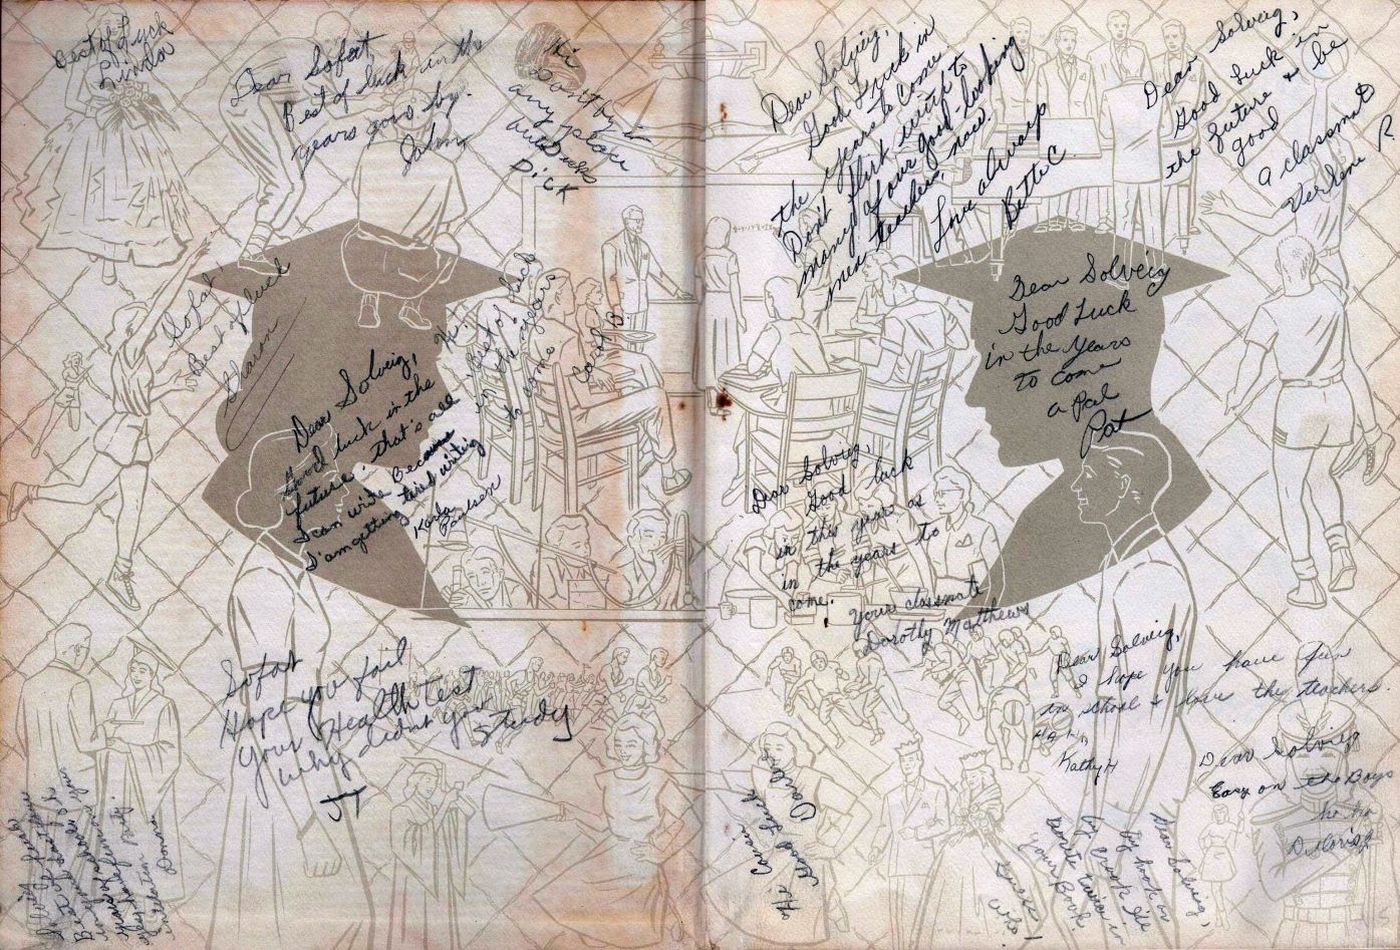 Best of Luck
Linda
Dear Sofat,
Best of luck in the
years gone by.
John
Hi
Don't by it
any place
but Dicks
DiCK
Sofat
Best of luck
Sharon
Hi
Best of luck
in the years
to come
Carol B
Dear Solveig,
Good luck in the
future, that's all
I can write because
I'am getting tired writing
Karla
Paulsen
Sofat
Hope you fail
your Health Test
why didn't you
Study
JT
Best of
Dear Solveig,
Good Luck in
the years to come
Don't flirt with to
many of your good-looking
men teachers now.
Love always
Bette C.
Dear Solveig,
Good Luck in
the future & be
good
a classmate
Verlene R
Dear Solveig
Good Luck
in the years
to come
a Pal
Pat
Dear Solveig,
Good luck
in this year as
in the years to
come.
Your classmate
Dorothy Matthews
Dear Solveig,
I hope you have fun
in school & have the teachers
Kathy H
Dear Solveig
Easy on the Boys
ha ha
Good Luck
Dear Solveig,
by hook or
by crook I'll
write twice in
your Book.
Guess
who!